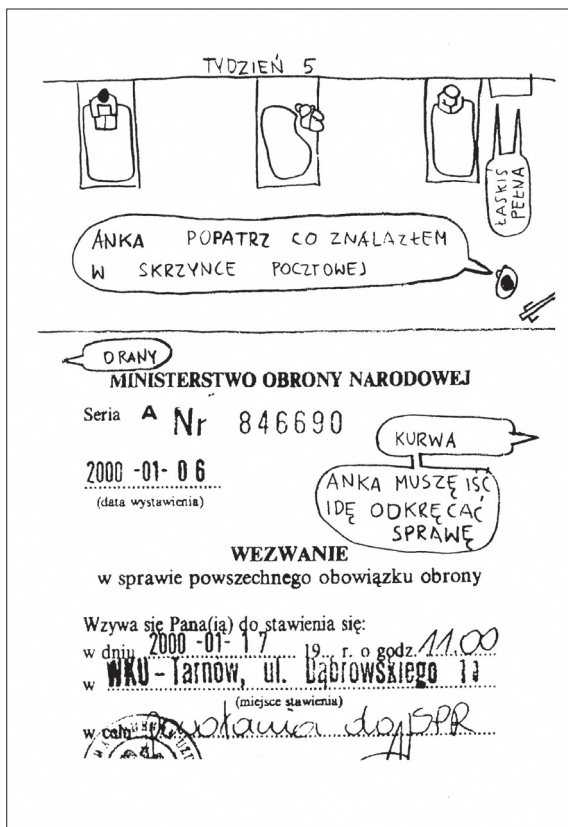 TYDZIEŃ 5
ŁASKIS
PEŁNA
ANKA POPATRZ CO ZNALAZŁEM
W SKRZYNCE POCZTOWEJ
ORANY
MINISTERSTWO OBRONY NARODOWEJ
Seria A Nr 846690
KURWA
2000 -01- 06
(data wystawienia)
ANKA MUSZĘ IŚĆ
IDĘ ODKRĘCAĆ
SPRAWĘ
WEZWANIE
w sprawie powszechnego obowiązku obrony
Wzywa się Pana(ią) do stawienia się:
w dniu 2000 -01- 17 19... r. o godz. 11.00
w WKU - Tarnów, ul. Dąbrowskiego 11
(miejsce stawienia)
w celu do SPR